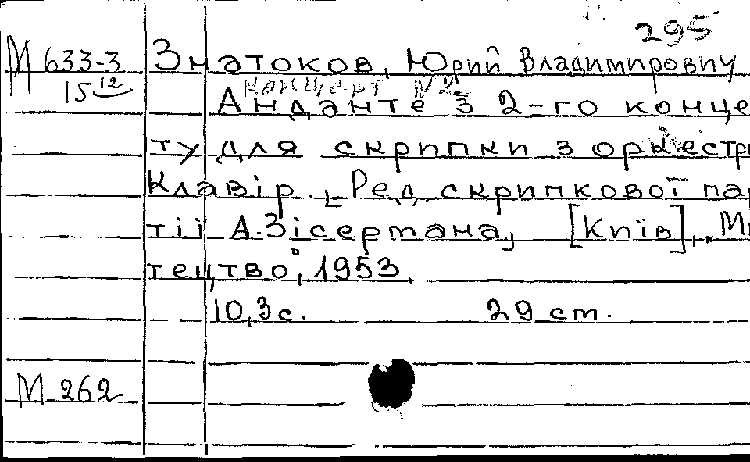 295
М 633-3 Знатоков, Юрий Владимирович
15 12
Концерт №2
Анданте з 2-го конце
ту для скрипки з оркестр
Клавір. Ред. скрипкової пар
тії А. Зісермана, [Київ], „Ми
тецтво", 1953.
10,3 с. 29 ст.
М 262